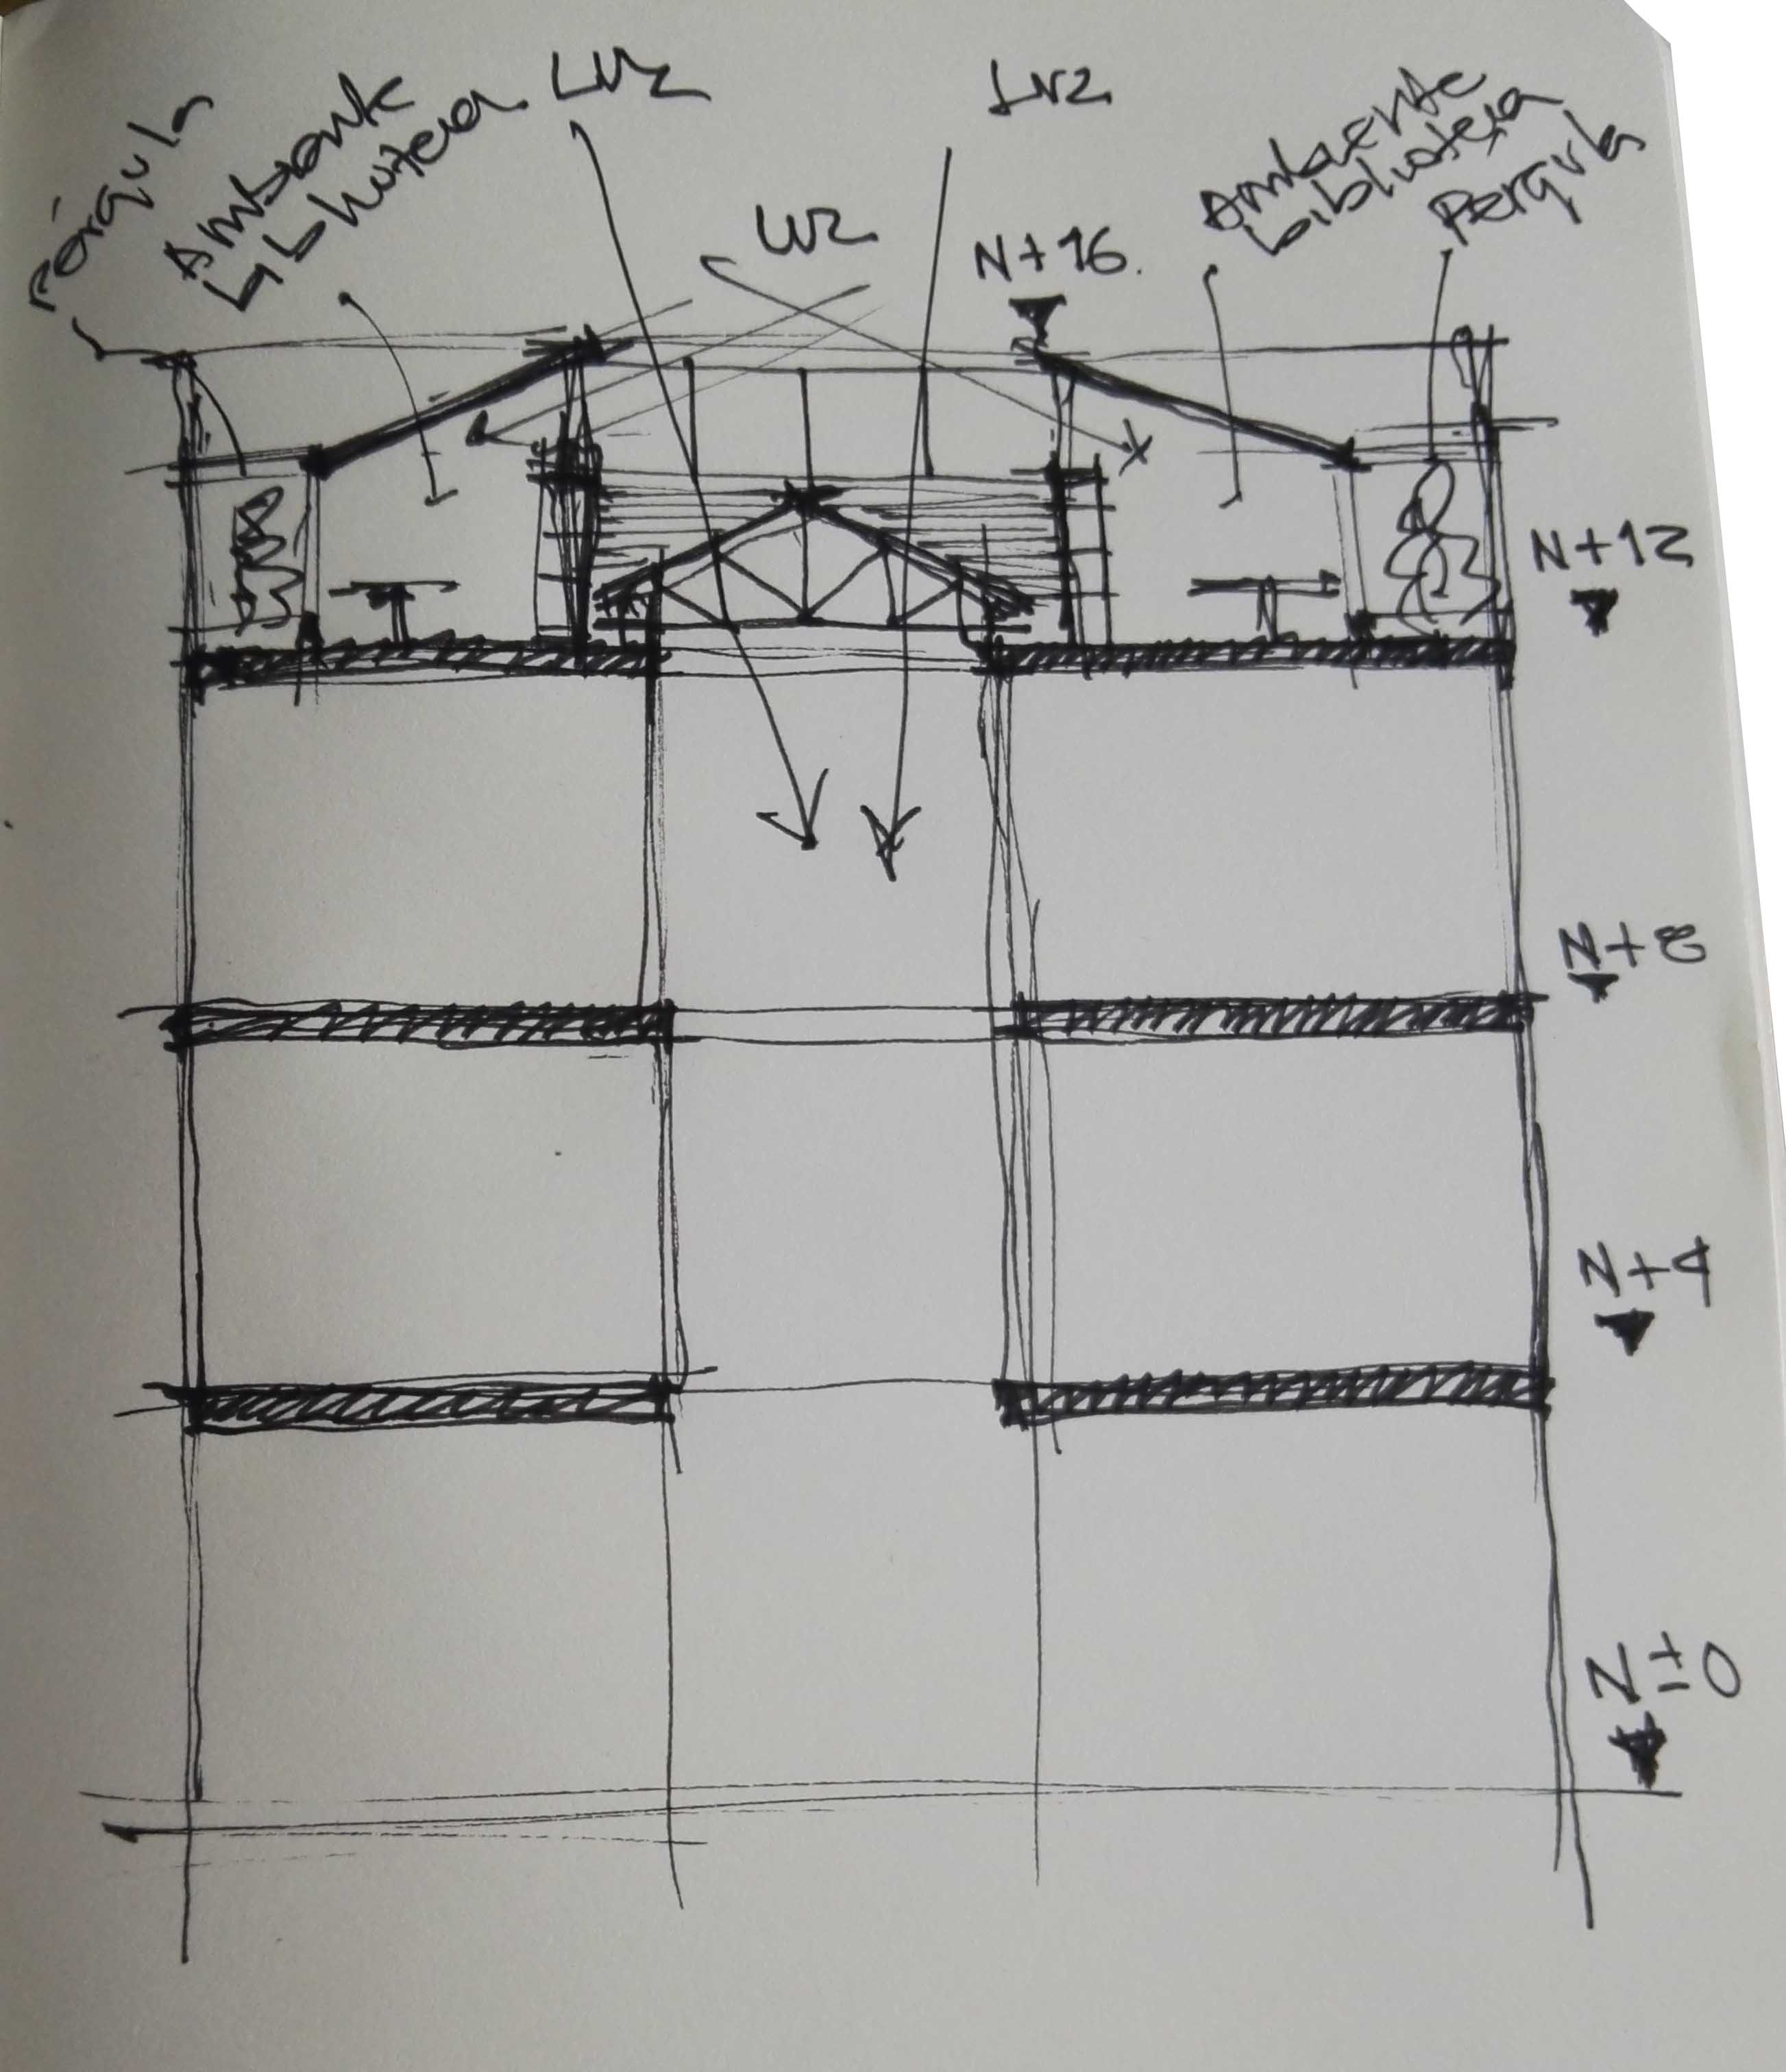 Pérgula
Ambiente
biblioteca
LUZ
LUZ
LUZ
N+16.
Ambiente
biblioteca
Pergula
N+12
N+8
N+4
N±0